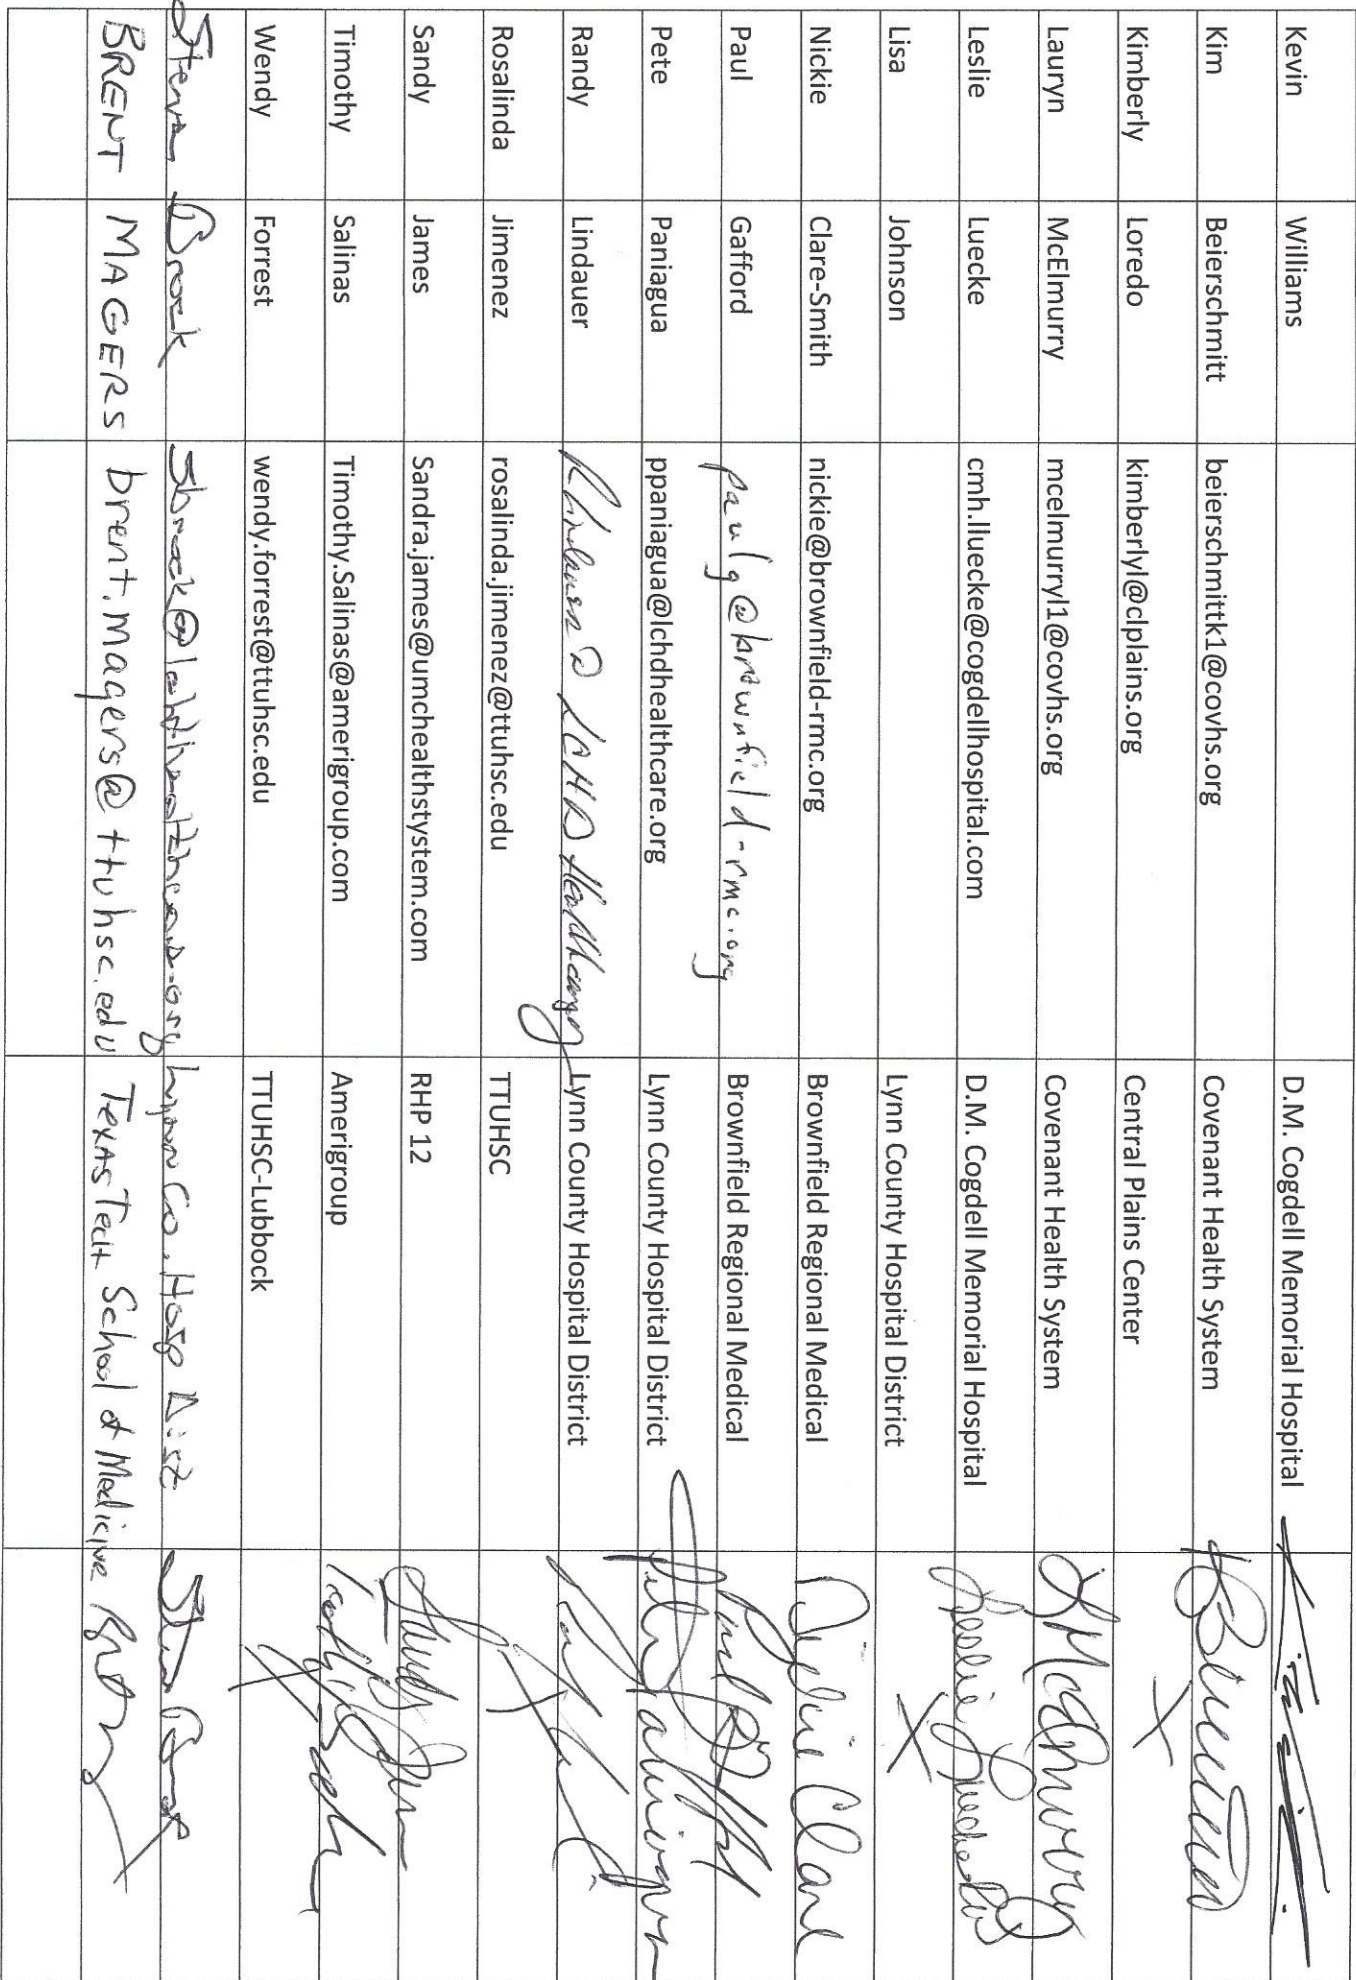 Kevin Williams D.M. Cogdell Memorial Hospital
Kim Beierschmitt beierschmittk1@covhs.org Covenant Health System
Kimberly Loredo kimberlyl@clplains.org Central Plains Center X
Lauryn McElmurry mcelmurryl1@covhs.org Covenant Health System L McElmurry
Leslie Luecke cmh.lluecke@cogdellhospital.com D.M. Cogdell Memorial Hospital Leslie Luecke
Lisa Johnson Lynn County Hospital District X
Nickie Clare-Smith nickie@brownfield-rmc.org Brownfield Regional Medical Nickie Clare
Paul Gafford paulg@brownfield-rmc.org Brownfield Regional Medical
Pete Paniagua ppaniagua@lchdhealthcare.org Lynn County Hospital District Pete Paniagua
Randy Lindauer Lynn County Hospital District
Rosalinda Jimenez rosalinda.jimenez@ttuhsc.edu TTUHSC X
Sandy James Sandra.james@umchealthstystem.com RHP 12
Timothy Salinas Timothy.Salinas@amerigroup.com Amerigroup
Wendy Forrest wendy.forrest@ttuhsc.edu TTUHSC-Lubbock X
Steven Brock Lynn Co. Hosp Dist
BRENT MAGERS brent.magers@ttuhsc.edu TEXAS TECH School of Medicine